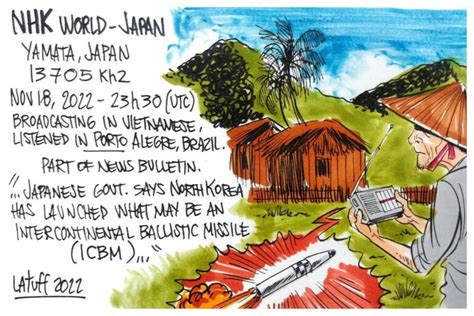 NHK WORLD-JAPAN
YAMATA, JAPAN
13705 KHz
NOV 18, 2022 - 23h30 (UTC)
BROADCASTING IN VIETNAMESE,
LISTENED IN PORTO ALEGRE, BRAZIL.
PART OF NEWS BULLETIN.
"...JAPANESE GOVT. SAYS NORTH KOREA
HAS LAUNCHED WHAT MAY BE AN
INTERCONTINENTAL BALLISTIC MISSILE
(ICBM)..."
LATUFF 2022